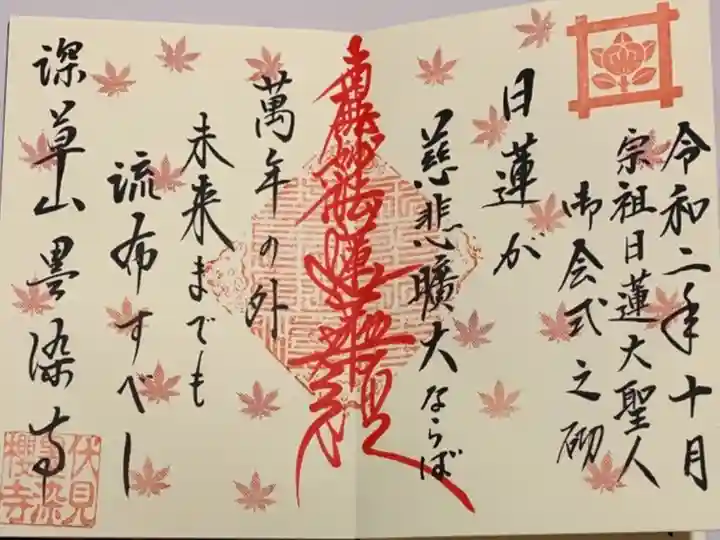 令和二年十月
宗祖日蓮大聖人
御会式之砌
日蓮が
慈悲曠大ならば
南無妙法蓮華経
萬年の外
未来までも
流布すべし
深草山墨染寺
伏見
墨染
櫻寺